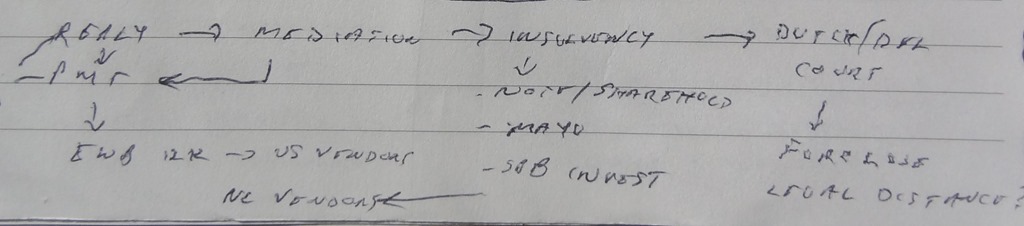 REPLY → MEDIATION → INSOLVENCY → DUTCH/DEL COURT
- PMT
- NOTE/SHAREHOLD
- MAYO
EWB 12K → US VENDORS
- SBB INVEST
FORECLOSE
NL VENDORS
LEGAL DISTANCE?